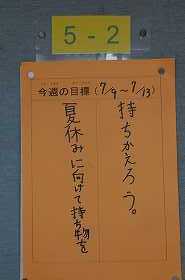 5-2
今週の目標(7/9~7/13)
夏休みに向けて持ち物を
持ちかえろう。